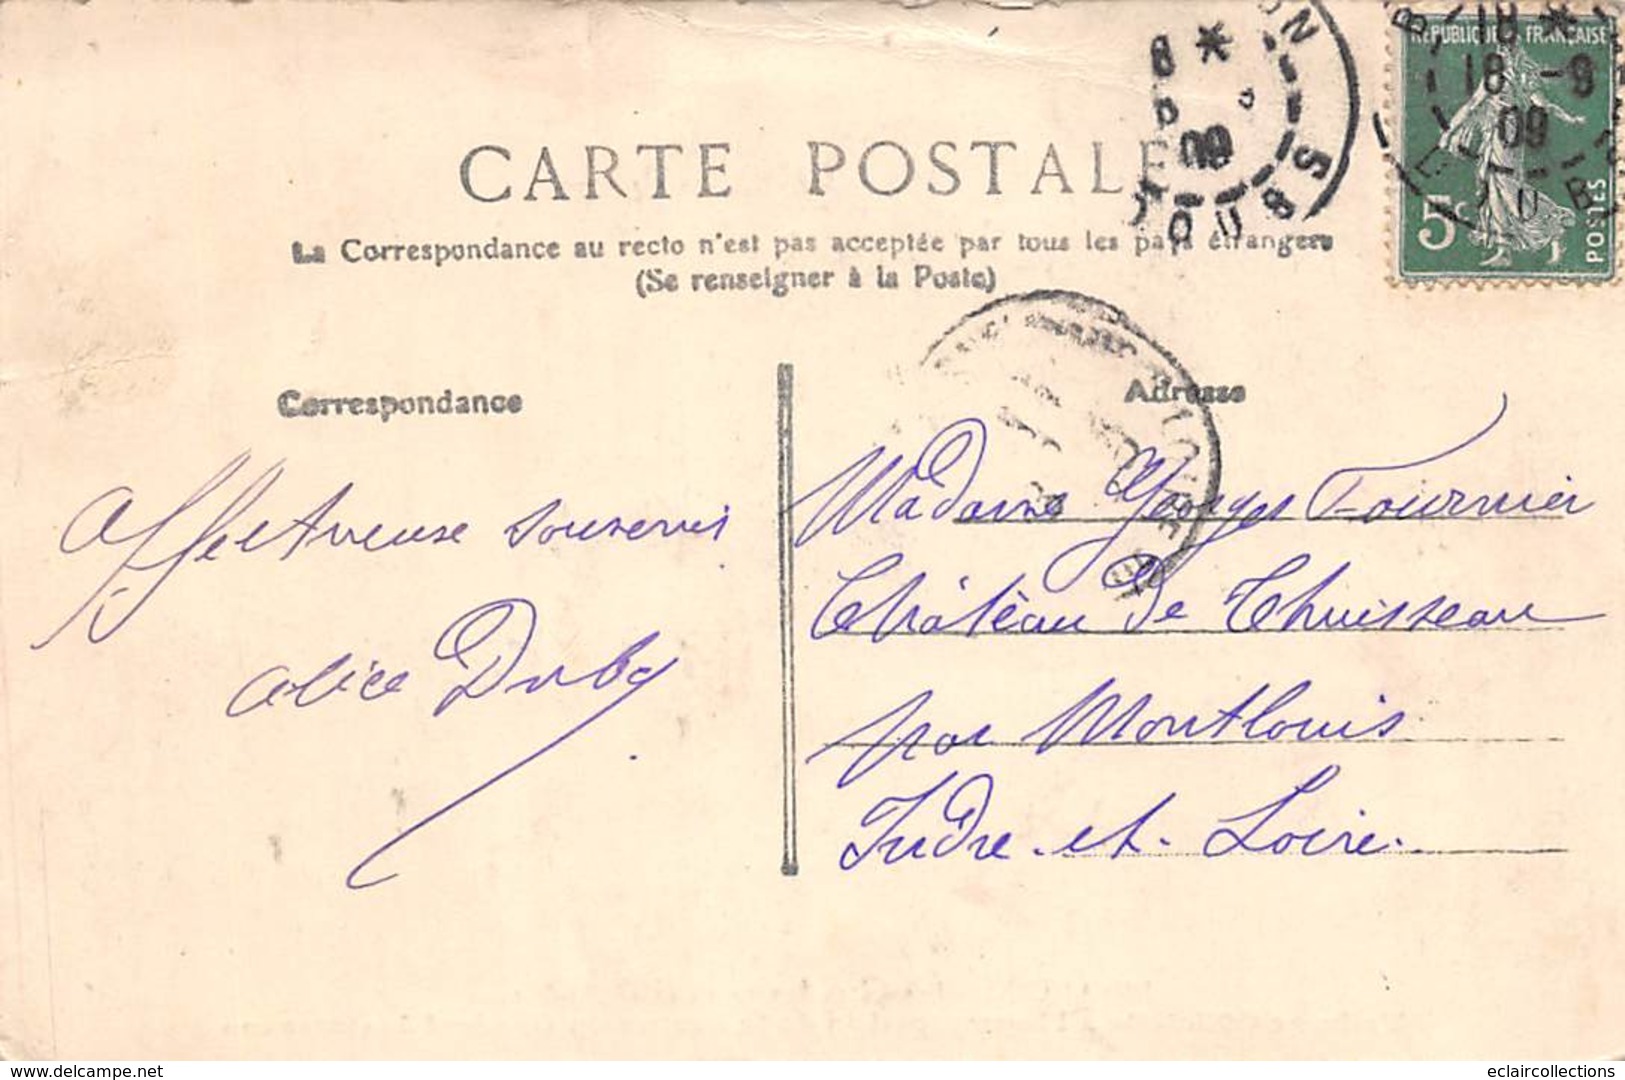 CARTE POSTALE
La Correspondance au recto n'est pas acceptée par tous les pays étrangers
(Se renseigner à la Poste)
Correspondance
Adresse
Affectueuse souvenir
Alice Duby
Madame Georges Fournier
Château de Thuisseau
par Montlouis
Indre-et-Loire.
RÉPUBLIQUE FRANÇAISE
5c
POSTES
18 *
18 -9
09
8 *
09
delcampe.net
eclaircollections